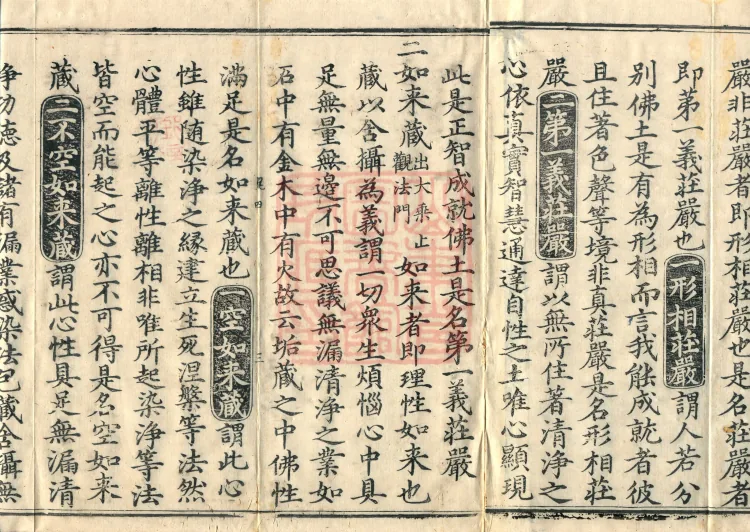 嚴非莊嚴者即形相莊嚴也非莊嚴者
即第一義莊嚴也一形相莊嚴謂人若分
別佛土是有為形相而言我能成就者彼
且住著色聲等境非真莊嚴是名形相莊
嚴二第一義莊嚴謂以無所住著清淨之
心依真實智慧通達自性之土唯心顯現
此是正智成就佛土是名第一義莊嚴
二如来藏出大乘止觀法門如来者即理性如来也
藏以含攝為義謂一切衆生煩惱心中具
足無量無邊不可思議無漏清淨之業如
石中有金木中有火故云垢藏之中佛性
滿足是名如来藏也一空如来藏謂此心
性雖随染淨之緣建立生死涅槃等法然
心體平等離性離相非唯所起染淨等法
皆空而能起之心亦不可得是名空如来
藏二不空如来藏謂此心性具足無漏清
淨功德及諸有漏業惑染法包藏含攝無